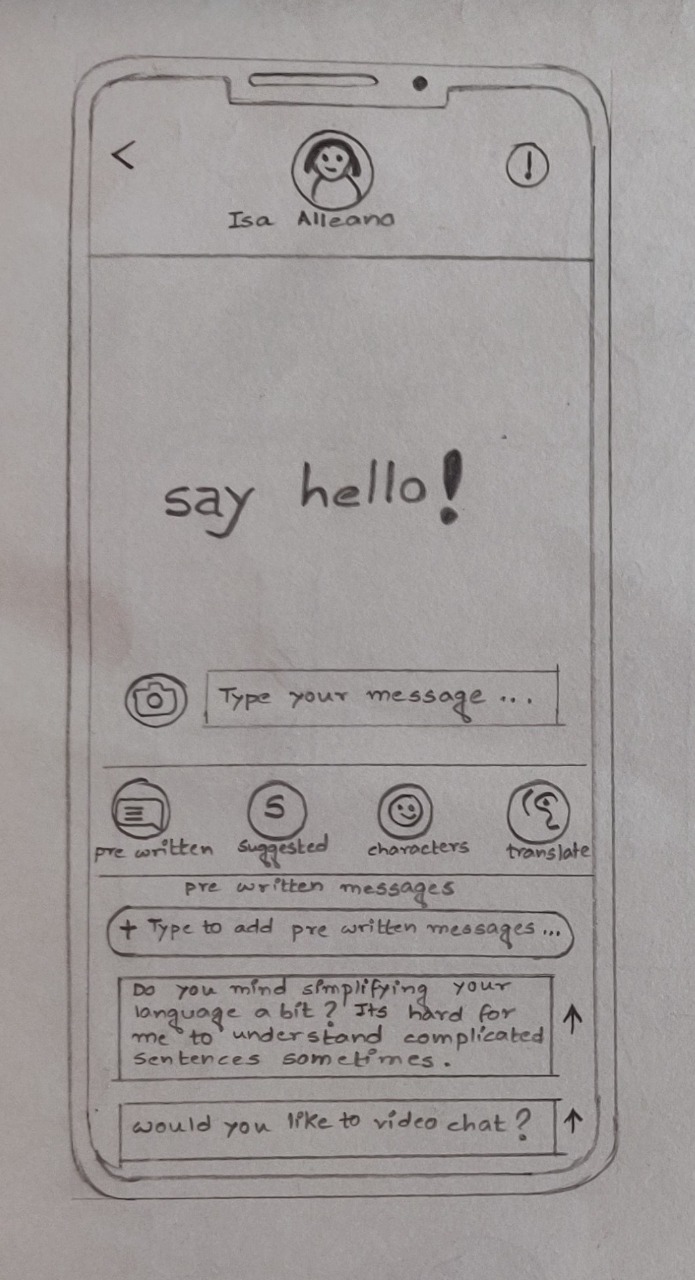 <
!
Isa Alleano
say hello!
Type your message ...
S
pre written suggested characters translate
pre written messages
+ Type to add pre written messages...
Do you mind simplifying your
language a bit? Its hard for
me to understand complicated
sentences sometimes.
↑
would you like to video chat?
↑